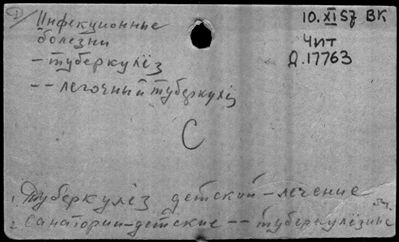 1) Инфекционные
болезни
– туберкулёз
–– легочный туберкулёз
10.XI 57 ВК
Чит
Д.17763
С
1. Туберкулёз детский – лечение
2. Санатории – детские –– туберкулёзные